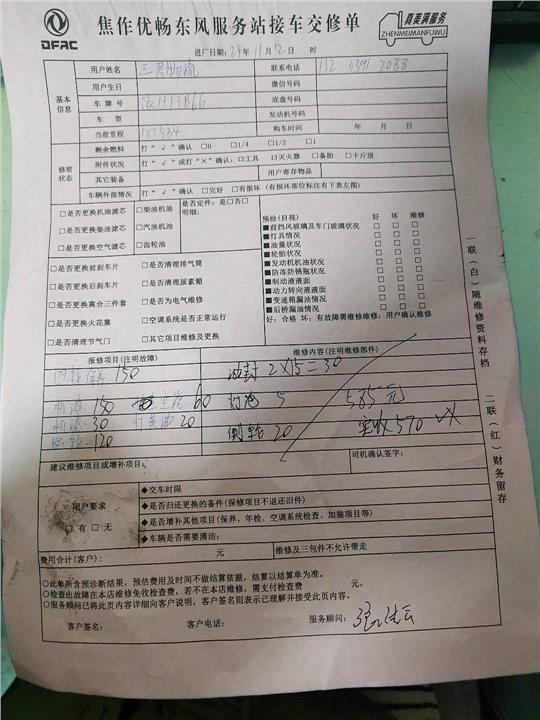 DFAC
焦作优畅东风服务站接车交修单
真美满服务
ZHENMEIMANFUWU
进厂日期:24年11月12日 时
基本信息
用户姓名 物流 联系电话 132 0391 7088
用户生日 微信号码
车牌号 H13B66 底盘号码
车型 发动机号码
当前里程 107584 购车时间 年 月 日
修前状态
剩余燃料 打“√”确认:□0 □1/4 □1/2 □1
附件状况 打“√”或打“×”确认:□工具 □灭火器 □备胎 □千斤顶
其它装备 用户寄存物品
车辆外部情况 打“√”确认 □完好 □有损坏(有损坏部位标注有下表左图)
□是否更换机油滤芯 □柴油机油 是否定件:是□否□
□是否更换柴油滤芯 □汽油机油 明细:
□是否更换空气滤芯 □齿轮油
□是否更换前刹车片 □是否清理排气筒
□是否更换后刹车片 □是否清理尿素箱
□是否更换离合三件套 □是否为电气维修
□是否更换火花塞 □空调系统是否正常运行
□是否清理节气门 □其它项目维修及更换
预检(目视) 好 坏 维修
■前挡风玻璃及车门玻璃状况 □ □ □
■灯具情况 □ □ □
■油量状况 □ □ □
■轮胎状况 □ □ □
■发动机机油状况 □ □ □
■防冻防锈瓶状况 □ □ □
■制动液液面 □ □ □
■动力转向液液面 □ □ □
■变速箱漏油情况 □ □ □
■后桥漏油情况 □ □ □
好:合格 坏:有故障需维修维修:用户确认维修
报修项目(注明故障) 维修内容(注明维修部件)
保养 150 油封 2×15=30
机油 150 60 5 585元
机滤 30 20 倒轮 20 实收570
120
建议维修项目或增补项目: 司机确认签字:
用户要求
□有 □无
◆交车时限
◆是否归还更换的备件(保修项目不退还旧件)
◆是否增补其他项目(保养、年检、空调系统检查、加装项目等)
◆车辆是否需要清洁:
费用合计(客户): 元 维修及三包件不允许带走
○此单所含预诊断结果,预估费用及时间不做结算依据,结算以结算单为准。
○检查出故障在本店维修免收检查费,若不在本店维修,需支付检查费 元。
○服务顾问已将此页内容详细向客户说明,客户签名则表示已理解并接受此页内容。
客户签名: 客户电话: 服务顾问:
一联(白)随维修资料存档
二联(红)财务留存